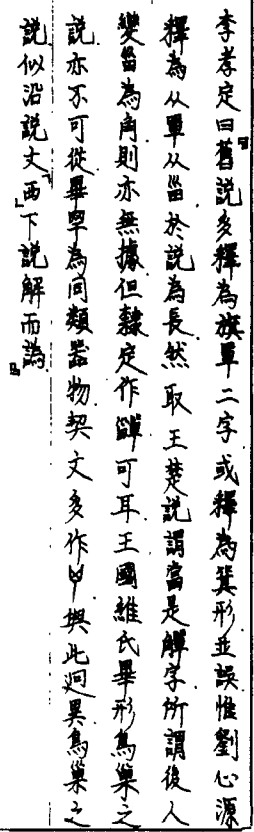 李孝定曰『舊說多釋為旗單二字或釋為箕形並誤惟劉心源
釋為从單从甾於說為長然取王楚說謂當是觶字所謂後人
變甾為角則亦無據但隸定作𤳳可耳王國維氏畢形鳥巢之
說亦不可從畢𠦒為同類器物契文多作與此迥異鳥巢之
說似沿說文「西」下說解而譌』